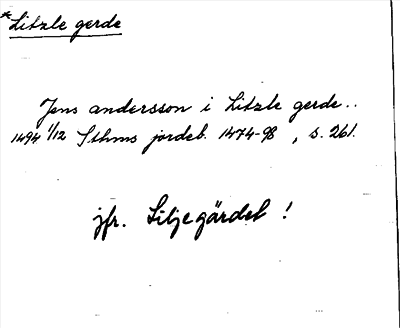 *Litzle gerde
Jens andersson i Litzle gerde..
1494 1/12 Sthms jordeb. 1474-98, s. 261.
jfr. Liljegärdet!